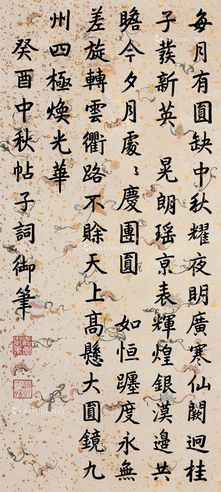 每月有圓缺中秋耀夜明廣寒仙闕迥桂
子蕟新英　晃朗瑶京表輝煌銀漢邊共
瞻今夕月處〻慶團圓　如恒躔度永無
差旋轉雲衢路不賖天上高懸大圓鏡九
州四極煥光華
癸酉中秋帖子詞御筆